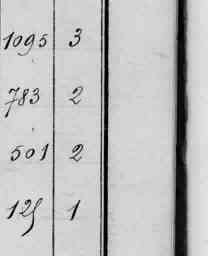 1095 3
783 2
501 2
125 1